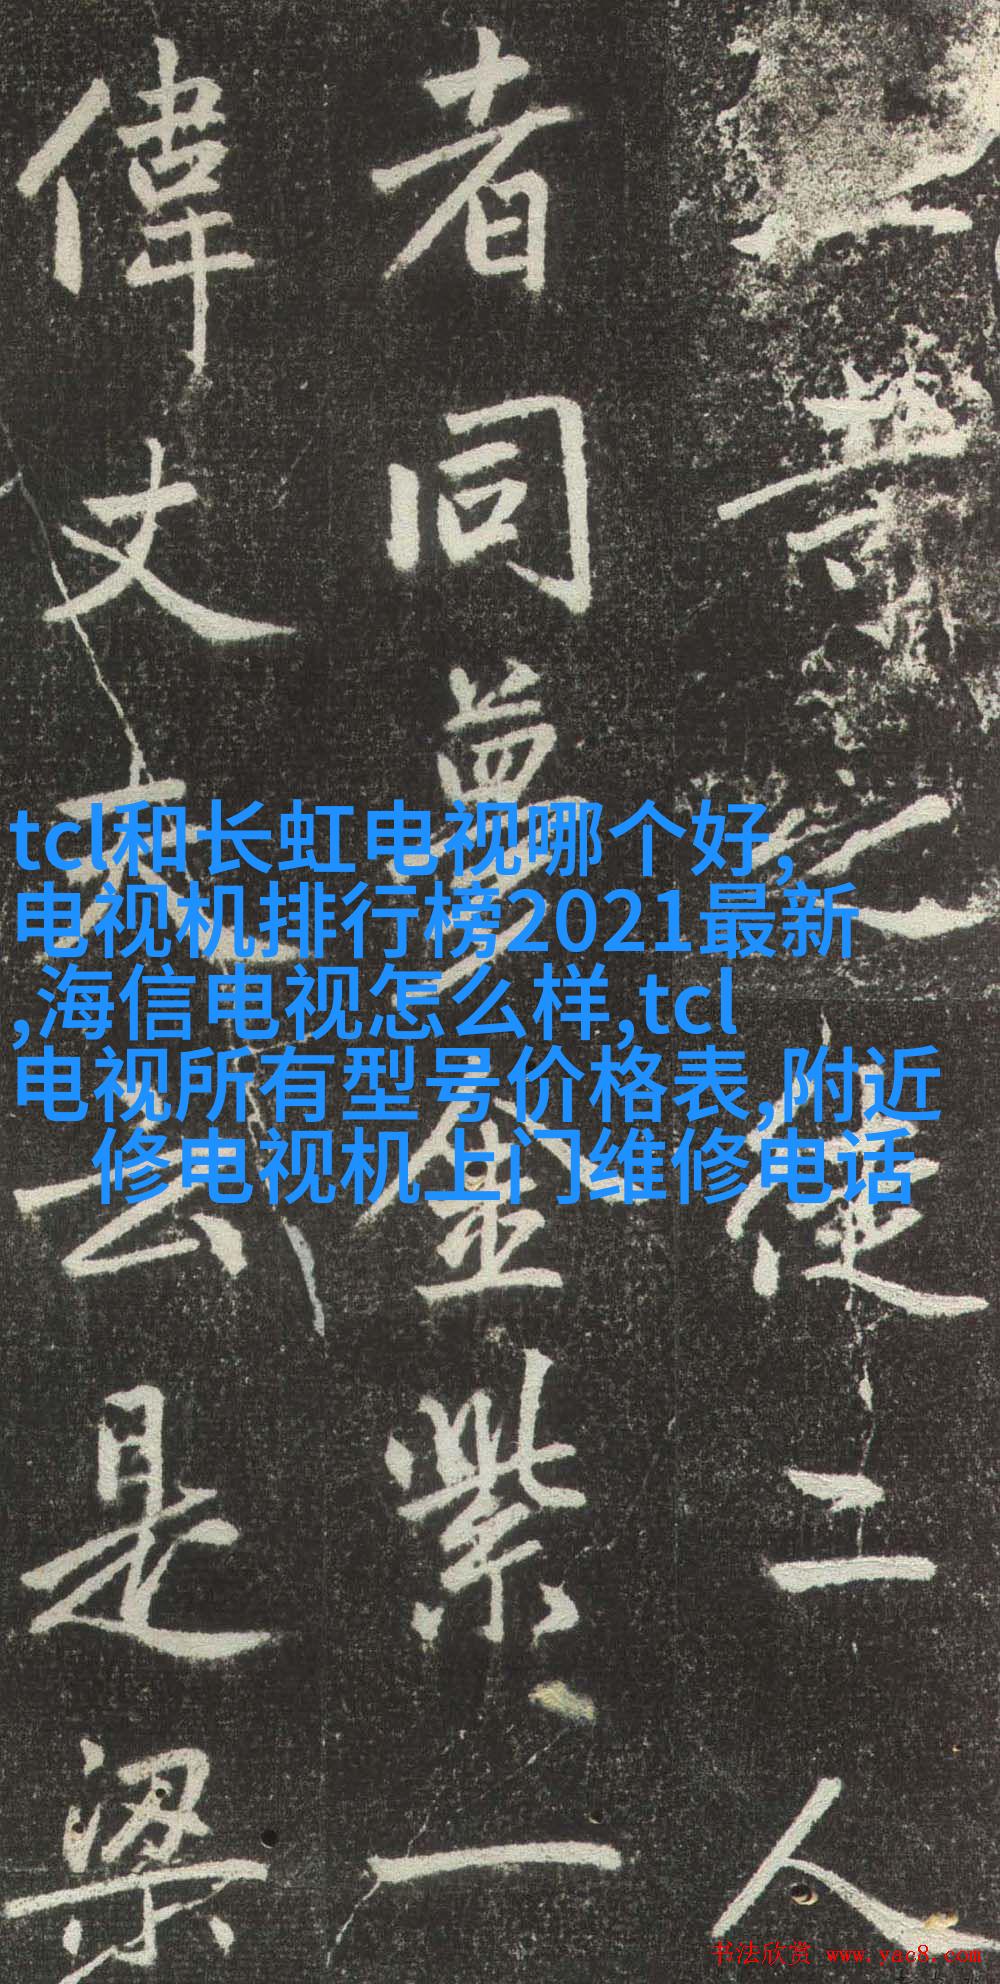 業之使二人
者同夢金紫一
偉丈夫云是梁
tcl和长虹电视哪个好,
电视机排行榜2021最新
,海信电视怎么样,tcl
电视所有型号价格表,附近
修电视机上门维修电话
书法欣赏 www.yac8.com